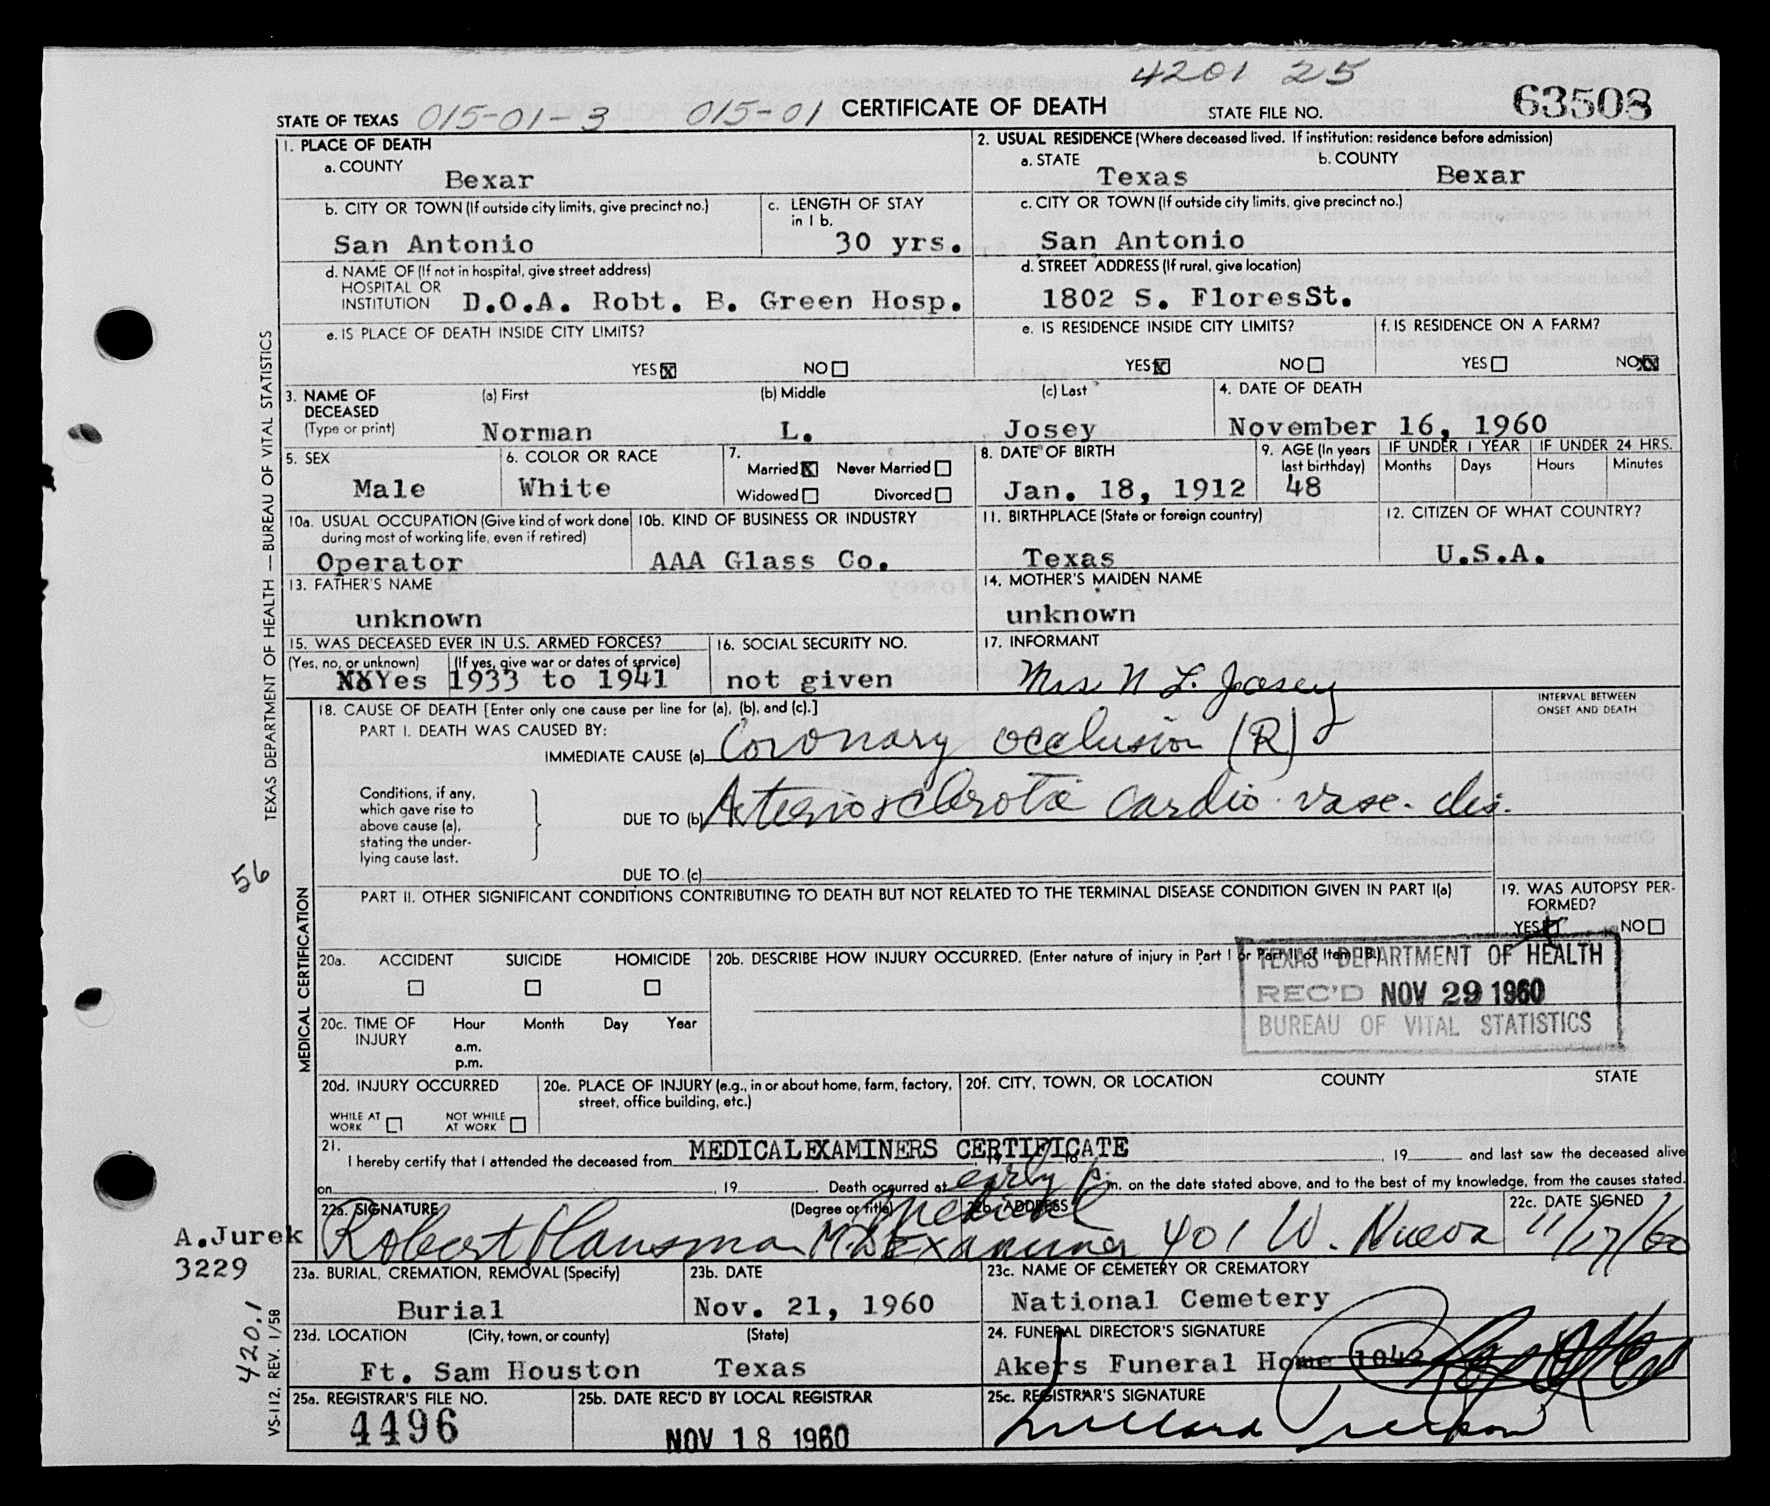 4201 25
STATE OF TEXAS 015-01-3 015-01 CERTIFICATE OF DEATH STATE FILE NO. 63508
1. PLACE OF DEATH
a. COUNTY
Bexar
2. USUAL RESIDENCE (Where deceased lived. If institution: residence before admission)
a. STATE b. COUNTY
Texas Bexar
b. CITY OR TOWN (If outside city limits, give precinct no.)
San Antonio
c. LENGTH OF STAY
in 1 b.
30 yrs.
c. CITY OR TOWN (If outside city limits, give precinct no.)
San Antonio
d. NAME OF (If not in hospital, give street address)
HOSPITAL OR
INSTITUTION D.O.A. Robt. B. Green Hosp.
d. STREET ADDRESS (If rural, give location)
1802 S. FloresSt.
e. IS PLACE OF DEATH INSIDE CITY LIMITS?
YES NO
e. IS RESIDENCE INSIDE CITY LIMITS?
YES NO
f. IS RESIDENCE ON A FARM?
YES NO
3. NAME OF
DECEASED
(Type or print)
(a) First (b) Middle (c) Last
Norman L. Josey
4. DATE OF DEATH
November 16, 1960
5. SEX
Male
6. COLOR OR RACE
White
7.
Married Never Married
Widowed Divorced
8. DATE OF BIRTH
Jan. 18, 1912
9. AGE (In years
last birthday)
48
IF UNDER 1 YEAR IF UNDER 24 HRS.
Months Days Hours Minutes
10a. USUAL OCCUPATION (Give kind of work done
during most of working life, even if retired)
Operator
10b. KIND OF BUSINESS OR INDUSTRY
AAA Glass Co.
11. BIRTHPLACE (State or foreign country)
Texas
12. CITIZEN OF WHAT COUNTRY?
U.S.A.
13. FATHER'S NAME
unknown
14. MOTHER'S MAIDEN NAME
unknown
15. WAS DECEASED EVER IN U.S. ARMED FORCES?
(Yes, no, or unknown) (If yes, give war or dates of service)
Yes 1933 to 1941
16. SOCIAL SECURITY NO.
not given
17. INFORMANT
Mrs N L. Josey
18. CAUSE OF DEATH [Enter only one cause per line for (a), (b), and (c).]
INTERVAL BETWEEN
ONSET AND DEATH
PART I. DEATH WAS CAUSED BY:
IMMEDIATE CAUSE (a) Coronary occlusion (R)
Conditions, if any,
which gave rise to
above cause (a),
stating the under-
lying cause last.
DUE TO (b) Arteriosclerotic cardio-vasc. dis.
DUE TO (c)
PART II. OTHER SIGNIFICANT CONDITIONS CONTRIBUTING TO DEATH BUT NOT RELATED TO THE TERMINAL DISEASE CONDITION GIVEN IN PART I(a)
19. WAS AUTOPSY PER-
FORMED?
YES NO
20a. ACCIDENT SUICIDE HOMICIDE
20b. DESCRIBE HOW INJURY OCCURRED. (Enter nature of injury in Part I or Part II of Item 18.)
TEXAS DEPARTMENT OF HEALTH
REC'D NOV 29 1960
BUREAU OF VITAL STATISTICS
20c. TIME OF
INJURY
Hour Month Day Year
a.m.
p.m.
20d. INJURY OCCURRED
WHILE AT
WORK
NOT WHILE
AT WORK
20e. PLACE OF INJURY (e.g., in or about home, farm, factory,
street, office building, etc.)
20f. CITY, TOWN, OR LOCATION COUNTY STATE
21.
I hereby certify that I attended the deceased from MEDICAL EXAMINERS CERTIFICATE , 19 and last saw the deceased alive
on , 19 . Death occurred at early p m. on the date stated above, and to the best of my knowledge, from the causes stated.
22a. SIGNATURE (Degree or title)
Robert Hausman M.D. Medical Examiner
22b. ADDRESS
401 W. Nueva
22c. DATE SIGNED
11/17/60
23a. BURIAL, CREMATION, REMOVAL (Specify)
Burial
23b. DATE
Nov. 21, 1960
23c. NAME OF CEMETERY OR CREMATORY
National Cemetery
23d. LOCATION (City, town, or county) (State)
Ft. Sam Houston Texas
24. FUNERAL DIRECTOR'S SIGNATURE
Akers Funeral Home 1042
25a. REGISTRAR'S FILE NO.
4496
25b. DATE REC'D BY LOCAL REGISTRAR
NOV 18 1960
25c. REGISTRAR'S SIGNATURE
TEXAS DEPARTMENT OF HEALTH — BUREAU OF VITAL STATISTICS
56
MEDICAL CERTIFICATION
A.Jurek
3229
420.1
VS-112, REV. 1/58